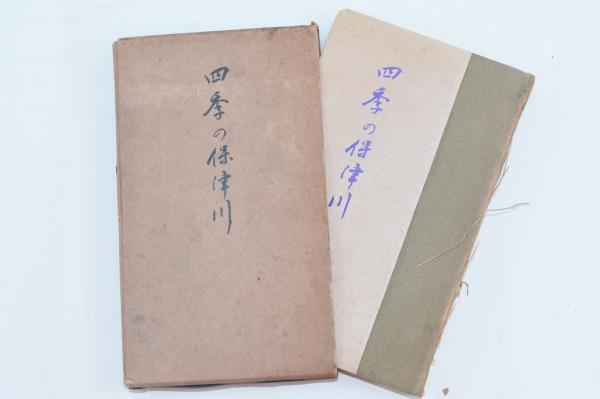 四季の保津川
四季の保津川